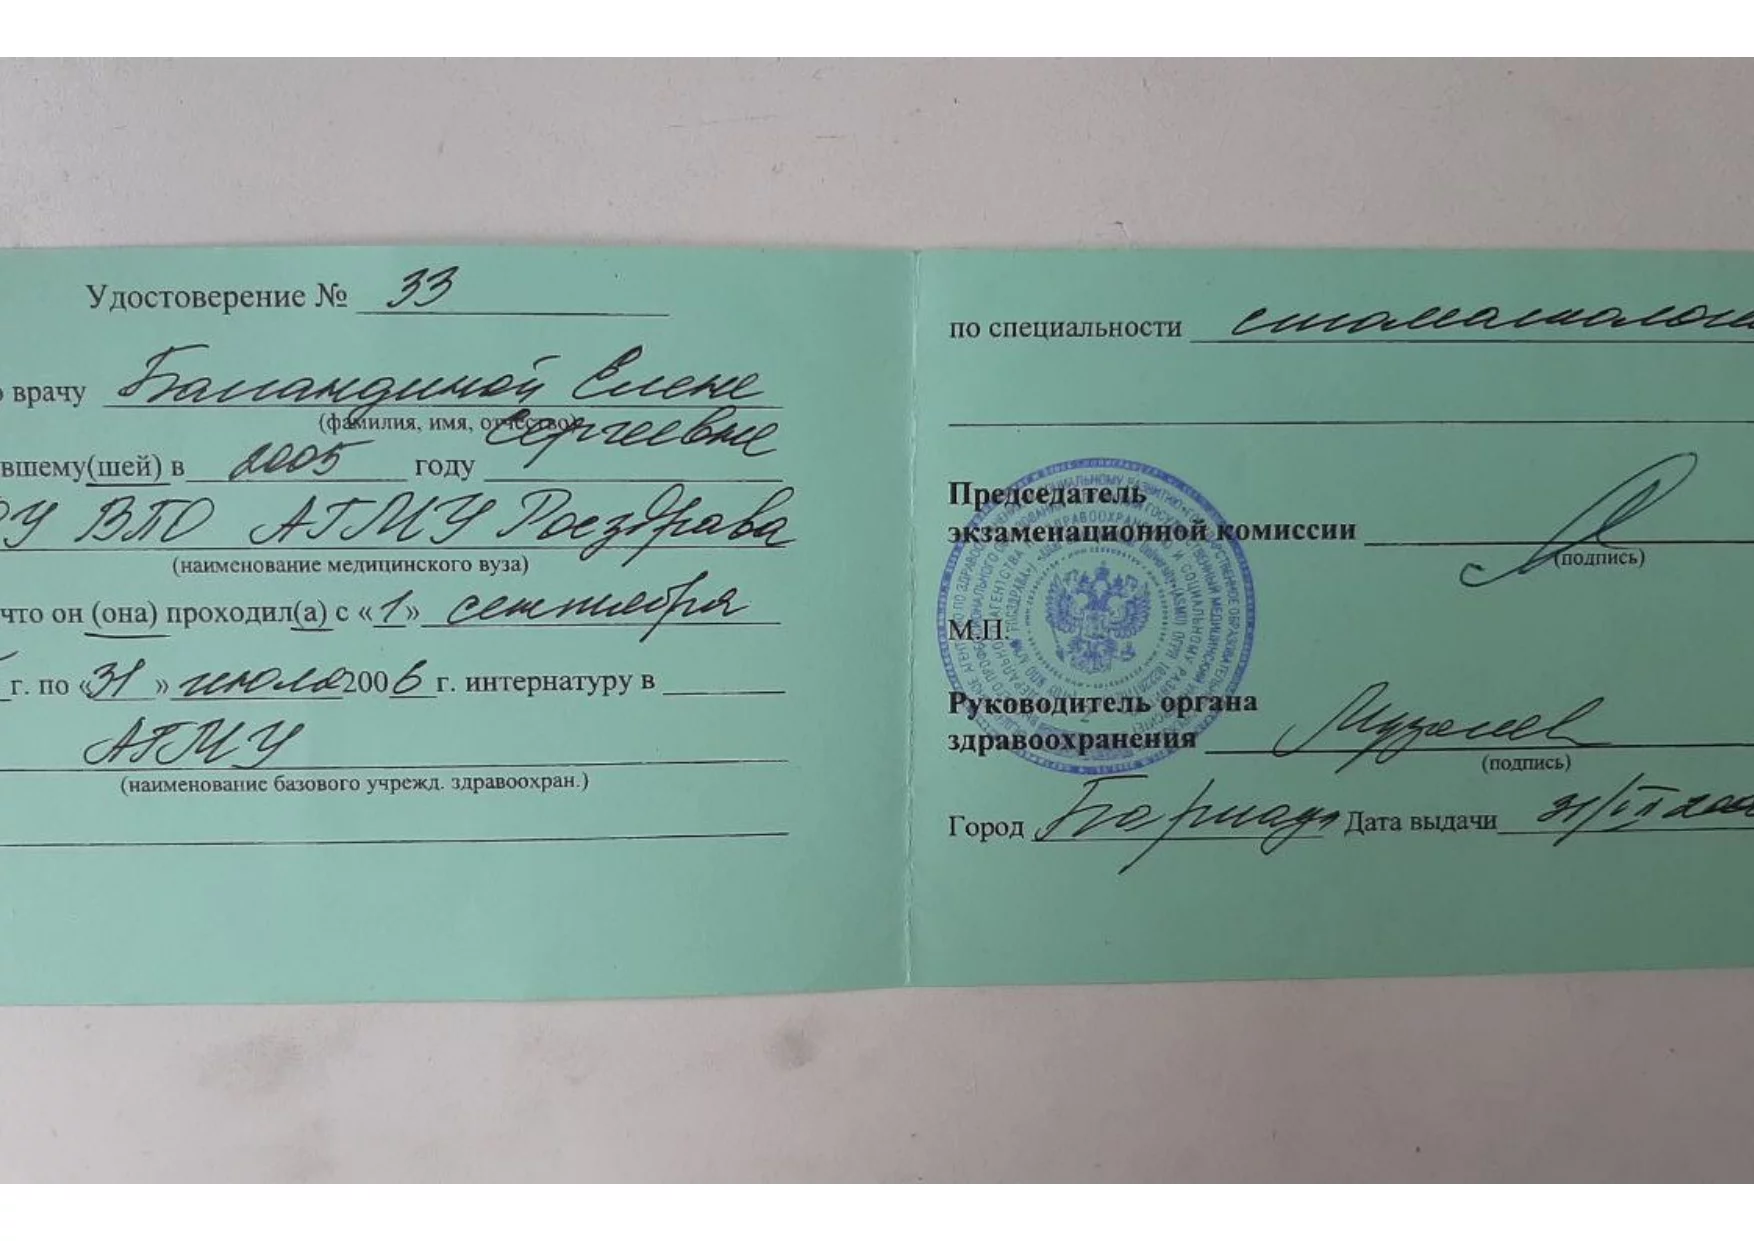 Удостоверение № 33
о врачу Баландиной Елене
(фамилия, имя, отчество)
Сергеевне
вшему(шей) в 2005 году
ОУ ВПО АГМУ Росздрава
(наименование медицинского вуза)
что он (она) проходил(а) с «1» сентября
г. по «31» июля 2006 г. интернатуру в
АГМУ
(наименование базового учрежд. здравоохран.)
по специальности стоматолог
Председатель
экзаменационной комиссии
(подпись)
М.П.
Руководитель органа
здравоохранения
(подпись)
Город Барнаул Дата выдачи